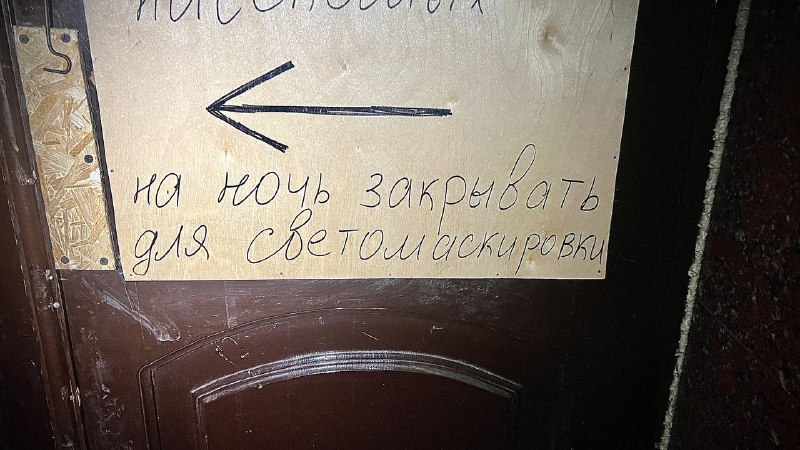 на ночь закрывать
для светомаскировки